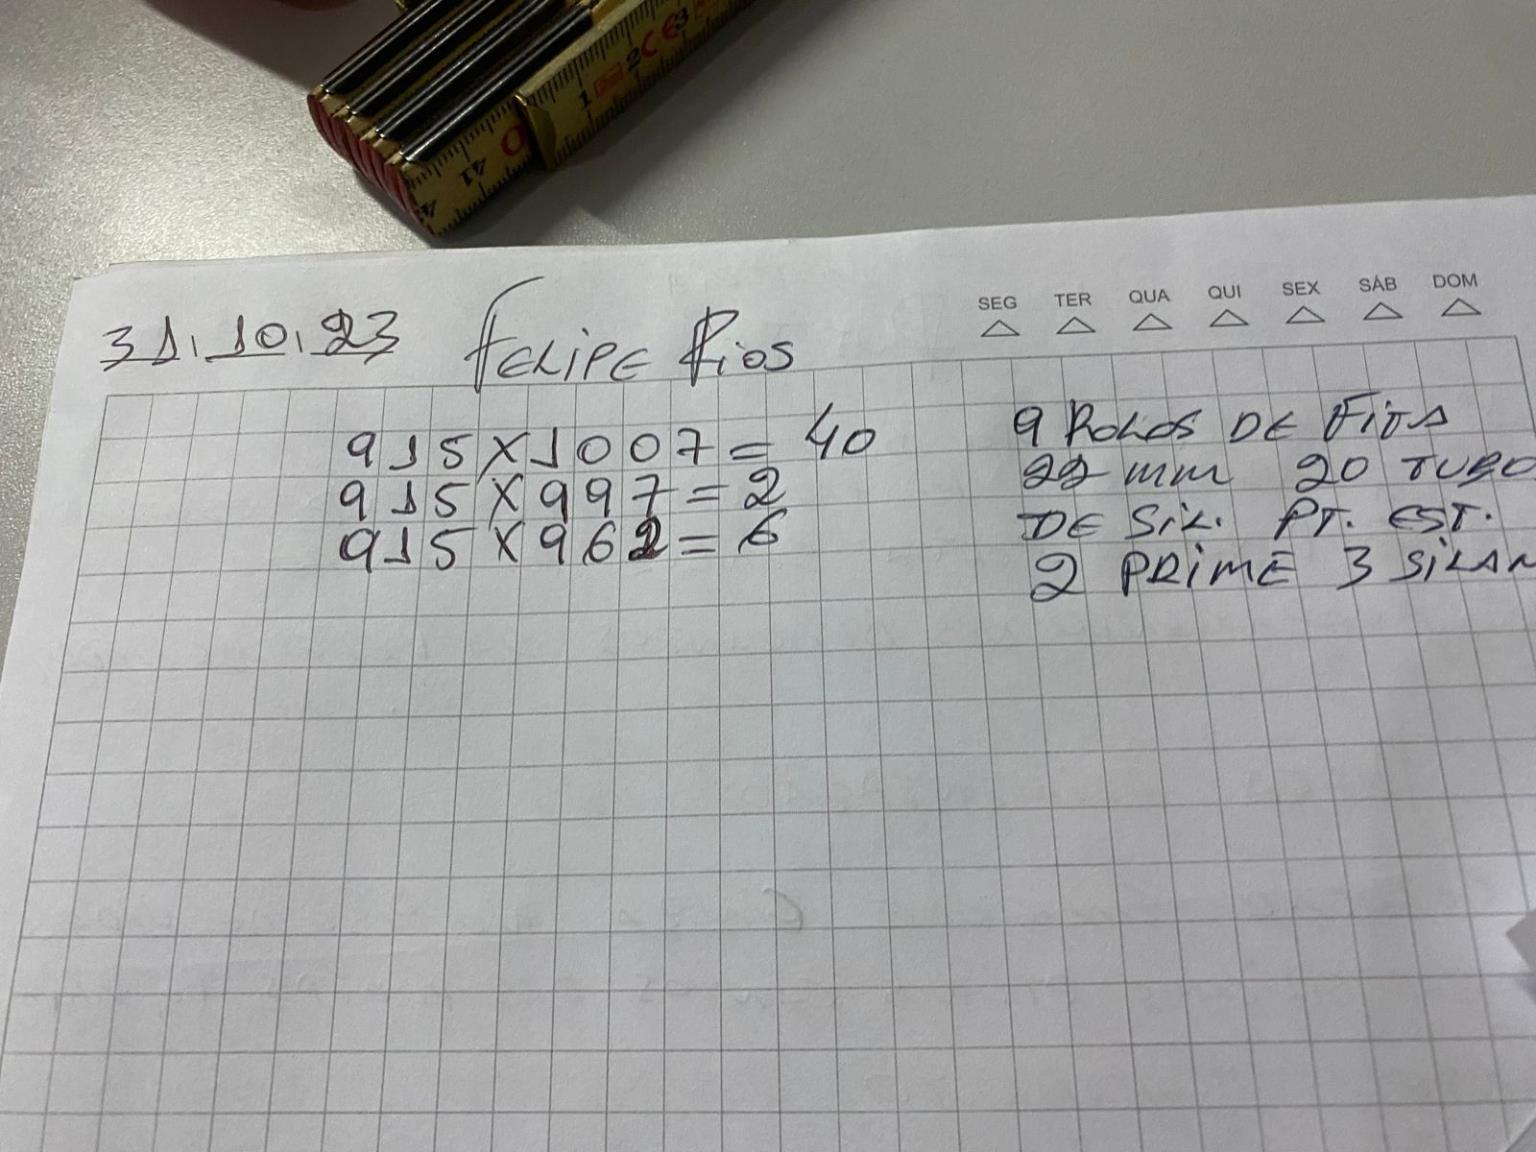 1 2 CE 3
41 0
31.10.23 FELIPE RIOS
SEG TER QUA QUI SEX SÁB DOM
915X1007=40
915X997=2
915X962=6
9 ROLOS DE FITA
22 mm 20 TUBO
DE SIL. PT. EST.
2 PRIME 3 SILAN